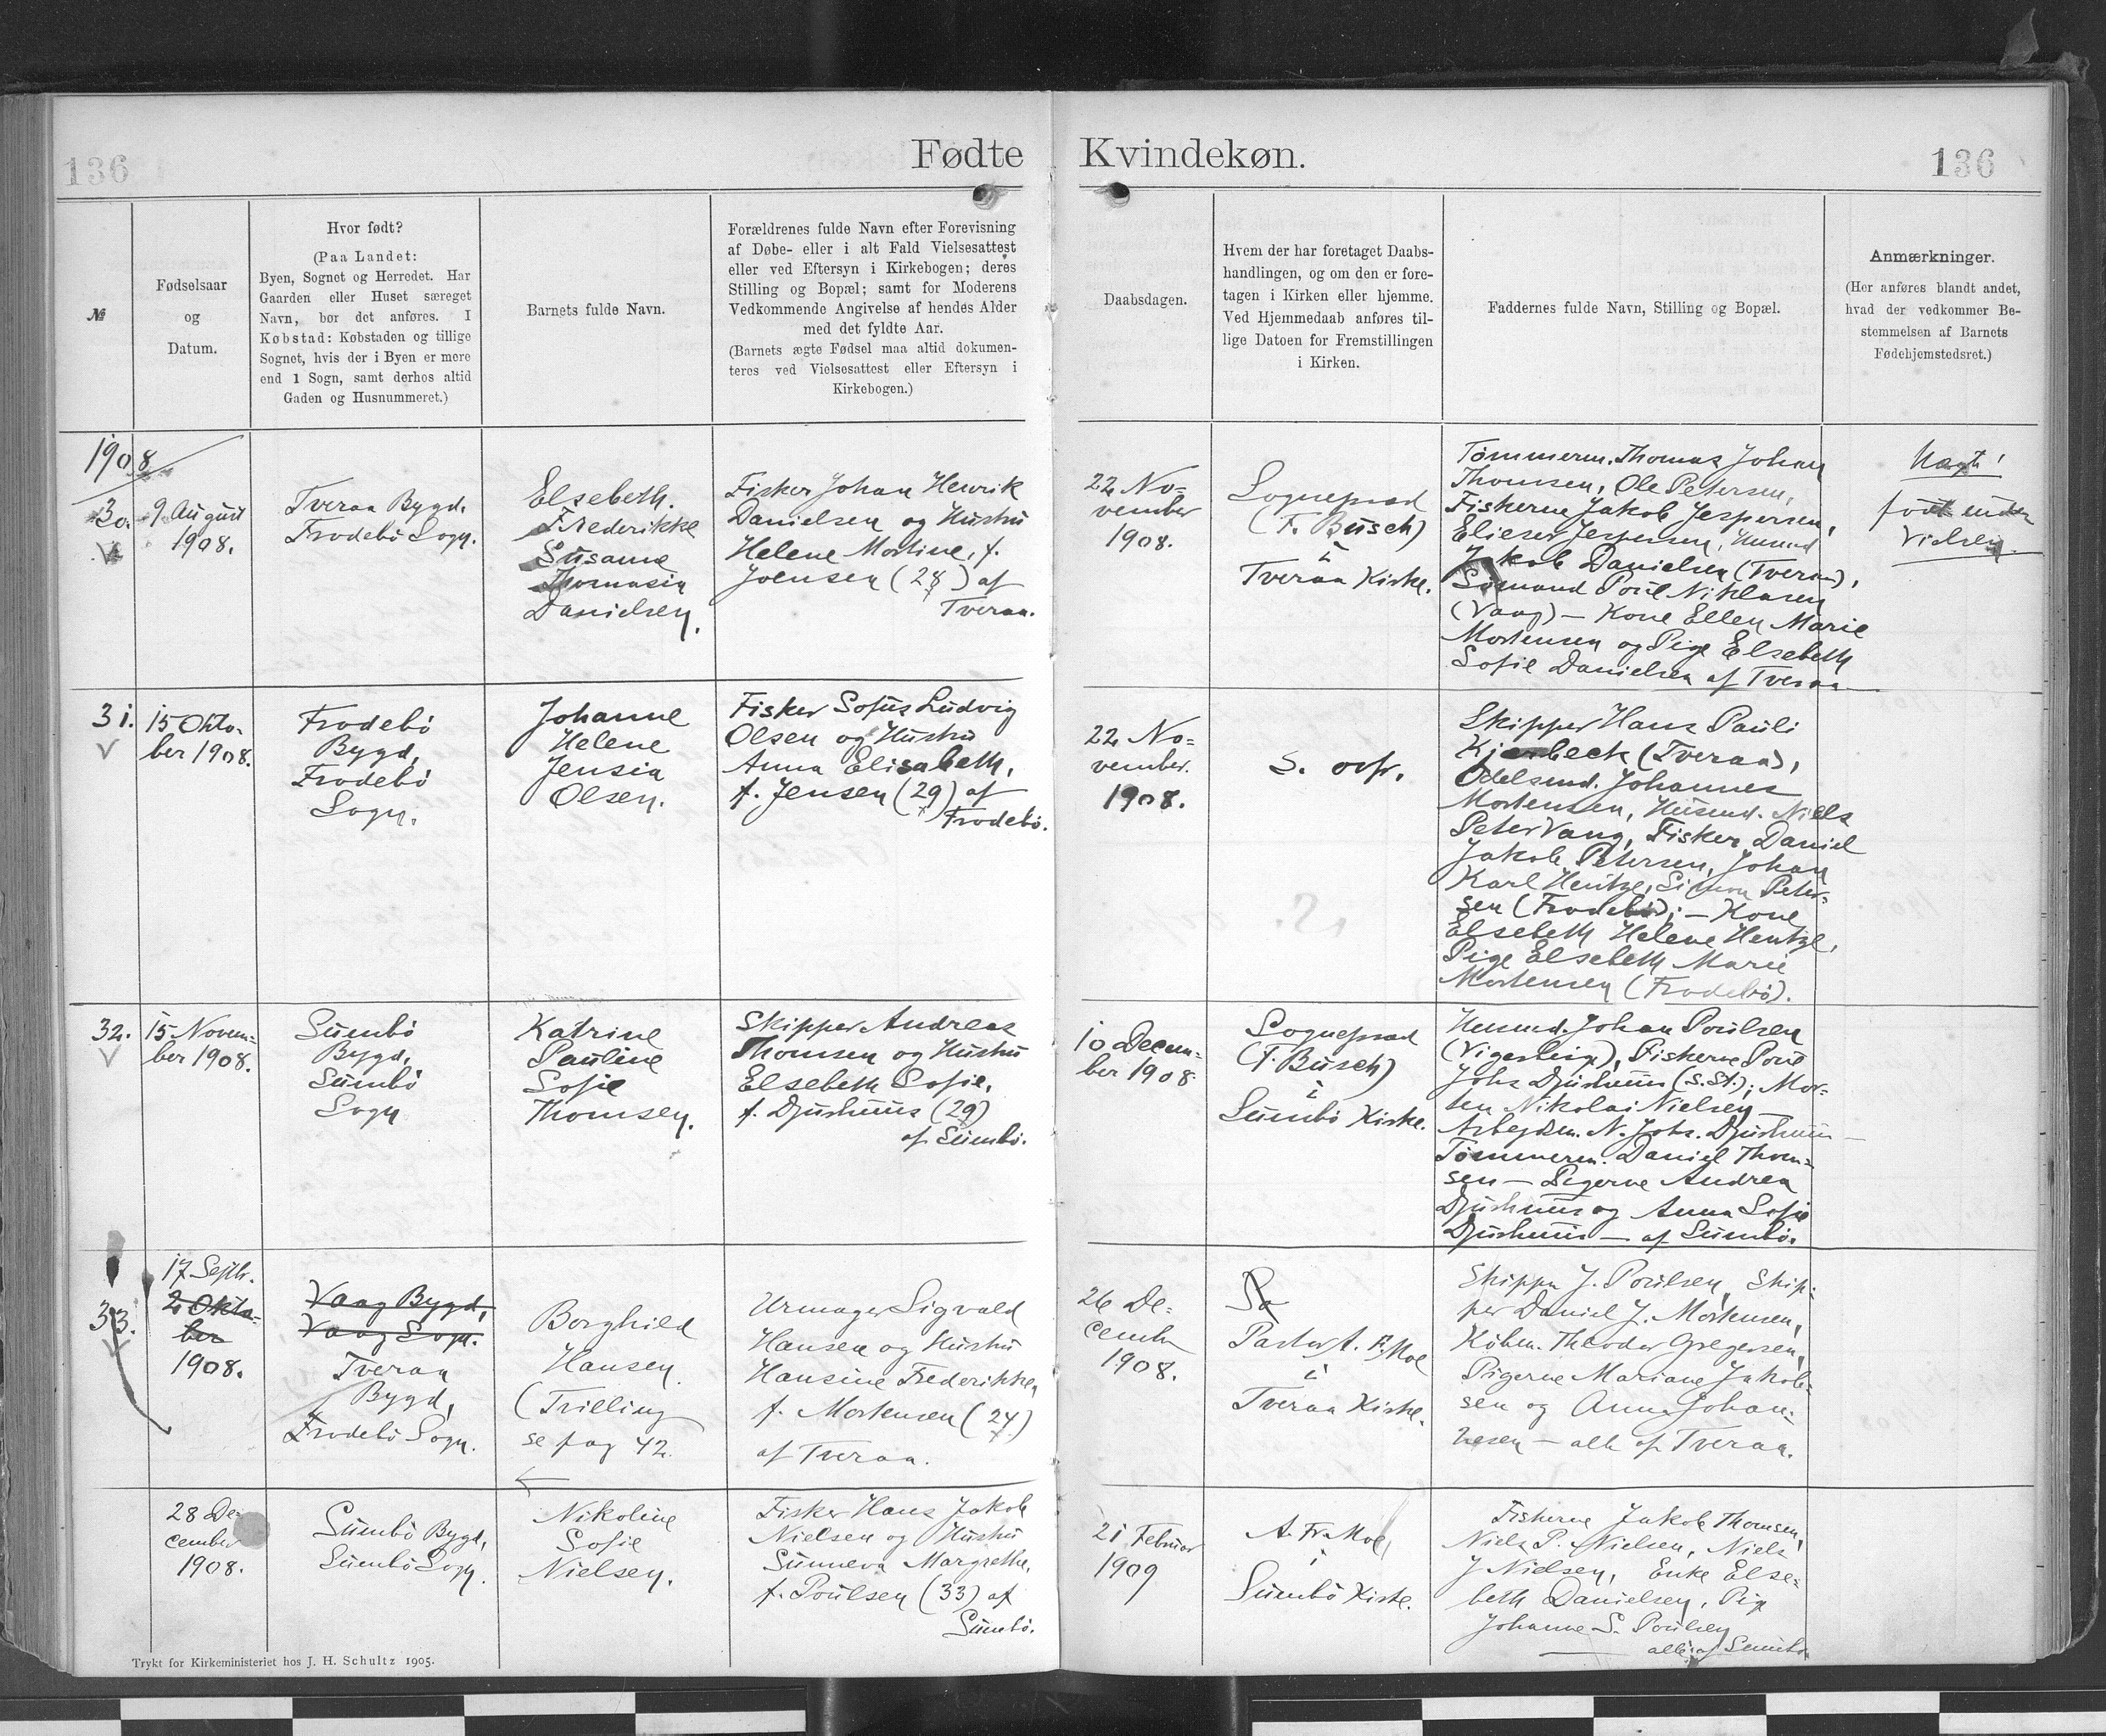 136
Fødte
Kvindekøn.
136
№
Fødselsaar
og
Datum.
Hvor født?
(Paa Landet:
Byen, Sognet og Herredet. Har
Gaarden eller Huset særeget
Navn, bør det anføres. I
Købstad: Købstaden og tillige
Sognet, hvis der i Byen er mere
end 1 Sogn, samt derhos altid
Gaden og Husnummeret.)
Barnets fulde Navn.
Forældrenes fulde Navn efter Forevisning
af Døbe- eller i alt Fald Vielsesattest
eller ved Eftersyn i Kirkebogen; deres
Stilling og Bopæl; samt for Moderens
Vedkommende Angivelse af hendes Alder
med det fyldte Aar.
(Barnets ægte Fødsel maa altid dokumen-
teres ved Vielsesattest eller Eftersyn i
Kirkebogen.)
Daabsdagen.
Hvem der har foretaget Daabs-
handlingen, og om den er fore-
tagen i Kirken eller hjemme.
Ved Hjemmedaab anføres til-
lige Datoen for Fremstillingen
i Kirken.
Faddernes fulde Navn, Stilling og Bopæl.
Anmærkninger.
(Her anføres blandt andet,
hvad der vedkommer Be-
stemmelsen af Barnets
Fødehjemstedsret.)
1908
30.
9 August
1908.
Tveraa Bygd.
Frodebö Sogn.
Elsebeth
Frederikke
Susanna
Thomasia
Danielsen.
Fisker Johan Henrik
Danielsen og Hustru
Helene Mortine, f.
Joensen (28) af
Tveraa.
22 No-
vember
1908.
Sognepræst
(F. Busch)
i
Tveraa Kirke.
Tømmerm. Thomas Johan
Thomsen, Ole Petersen,
Fiskerne Jakob Jespersen,
Elieser Jespersen, Husmd
Jakob Danielsen (Tveraa),
Sømand Poul Niklasen
(Vaag) – Kone Ellen Marie
Mortensen og Pige Elsebeth
Sofie Danielsen af Tveraa
Uægte!
født uden
Vielsen
31.
15 Okto-
ber 1908.
Frodebö
Bygd,
Frodebö
Sogn.
Johanne
Helene
Jensia
Olsen.
Fisker Sofus Ludvig
Olsen og Hustru
Anna Elisabeth,
f. Jensen (29) af
Frodebö.
22 No-
vember.
1908.
S. ovfr.
Skipper Hans Pauli
Kjærbeck (Tveraa),
Odelsmd. Johannes
Mortensen, Husmd. Niels
Peter Vang, Fisker Daniel
Jakob Petersen, Johan
Karl Hentze, Simon Peter-
sen (Frodebö); – Kone
Elsebeth Helene Hentze,
Pige Elsebeth Marie
Mortensen (Frodebö).
32.
15 Novem-
ber 1908.
Sumbö
Bygd,
Sumbö
Sogn
Katrine
Pauline
Sofie
Thomsen.
Skipper Andreas
Thomsen og Hustru
Elsebeth Sofie,
f. Djurhuus (29)
af Sumbö.
10 Decem-
ber 1908.
Sognepræst
(F. Busch)
i
Sumbö Kirke.
Husmd. Johan Poulsen
Fiskerne Poul
Johs Djurhuus (s. St.); Mor-
ten Nikolai Nielsen
Arbejdsm. N. Johs. Djurhuus
Tømmerm. Daniel Thom-
sen – Pigerne Andrea
Djurhuus og Anna Sofie
Djurhuus – af Sumbö.
33.
17 Septb.
2 Okto-
ber
1908.
Vaag Bygd,
Vaag Sogn.
Tveraa
Bygd,
Frodebö Sogn.
Borghild
Hansen.
(Trilling
se pag 42.
Urmager Sigvald
Hansen og Hustru
Hansine Frederikke,
f. Mortensen (24)
af Tveraa.
26 De-
cember
1908.
So
Pastor A. F. Moe
i
Tveraa Kirke.
Skipper J. Poulsen, Skip-
per Daniel J. Mortensen,
Købm. Theodor Gregersen,
Pigerne Mariane Jakob-
sen og Anna Johan-
nesen – alle af Tveraa.
28 De-
cember
1908.
Sumbö Bygd,
Sumbö Sogn.
Nikoline
Sofie
Nielsen.
Fisker Hans Jakob
Nielsen og Hustru
Sunneva Margrethe,
f. Poulsen (33) af
Sumbö.
21 Februar
1909
A. Fr. Moe,
i
Sumbö Kirke.
Fiskerne Jakob Thomsen,
Niels P. Nielsen, Niels
J Nielsen, Enke Else-
beth Danielsen, Pige
Johanne S. Poulsen
alle af Sumbö
Trykt for Kirkeministeriet hos J. H. Schultz 1905.